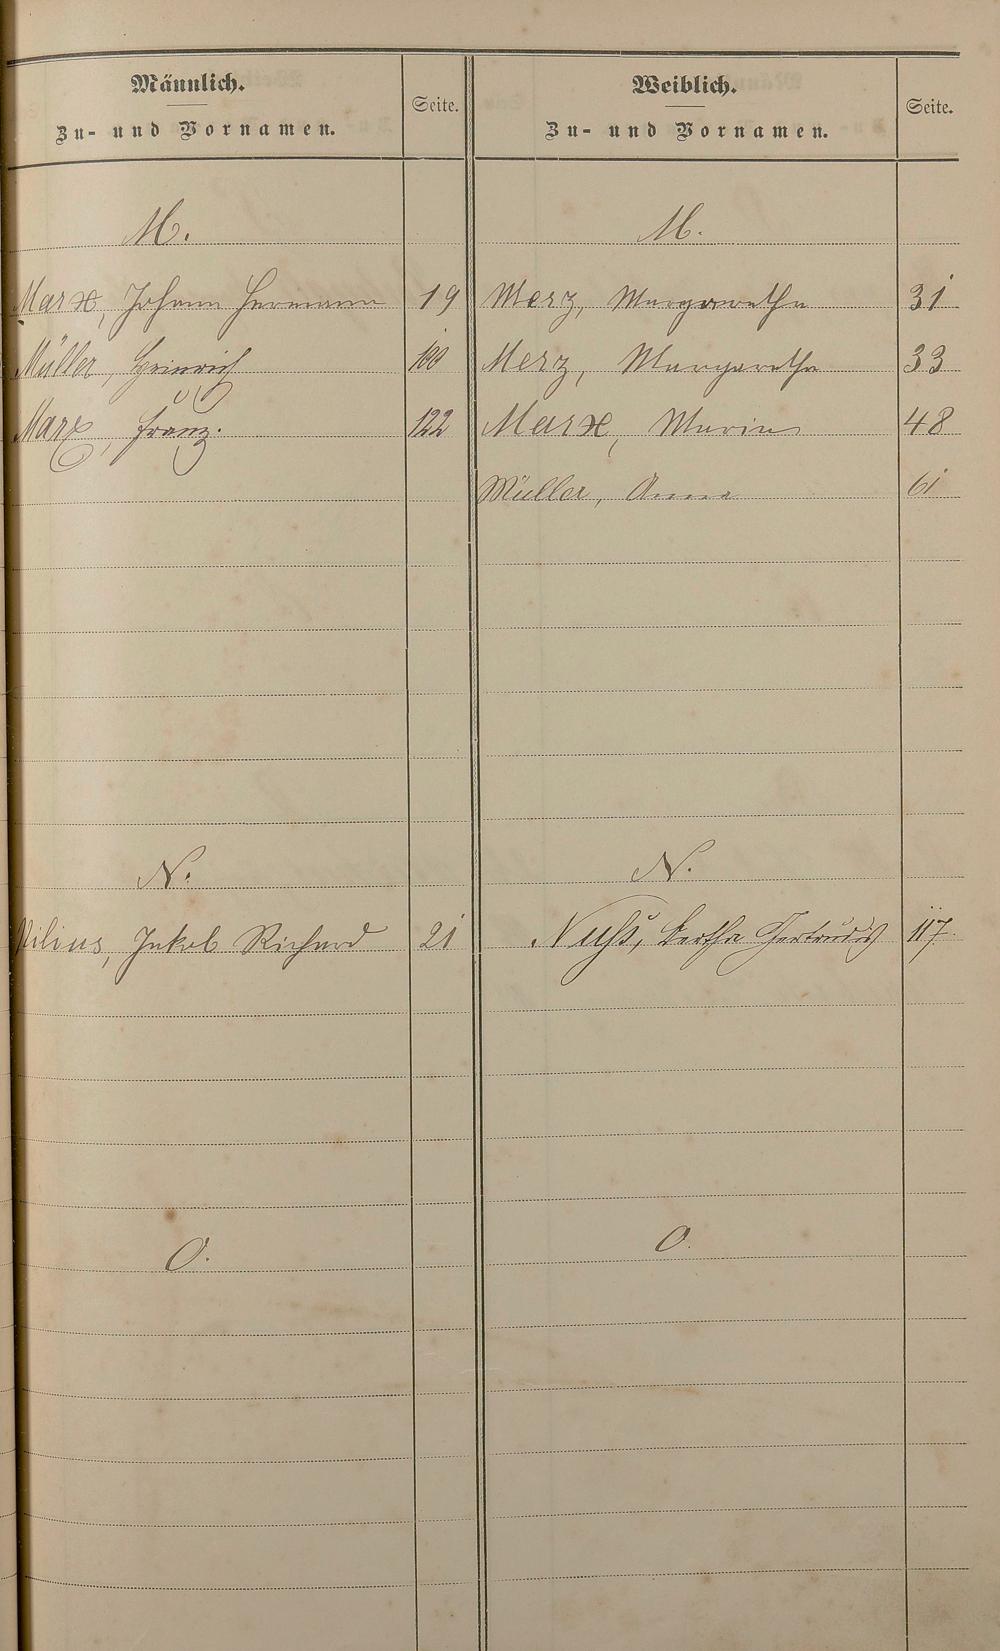 Männlich.
Zu- und Vornamen.
Seite.
Weiblich.
Zu- und Vornamen.
Seite.
M.
Marx, Johann Hermann 19
Müller, Heinrich
Marx, Franz. 122
M.
Merz, Margaretha 31
Merz, Margaretha 33
Marx, Maria 48
Müller, Anna 61
N.
Nilius, Jakob Richard 21
N.
Nuß, Bertha Gertrudis 117.
O.
O.